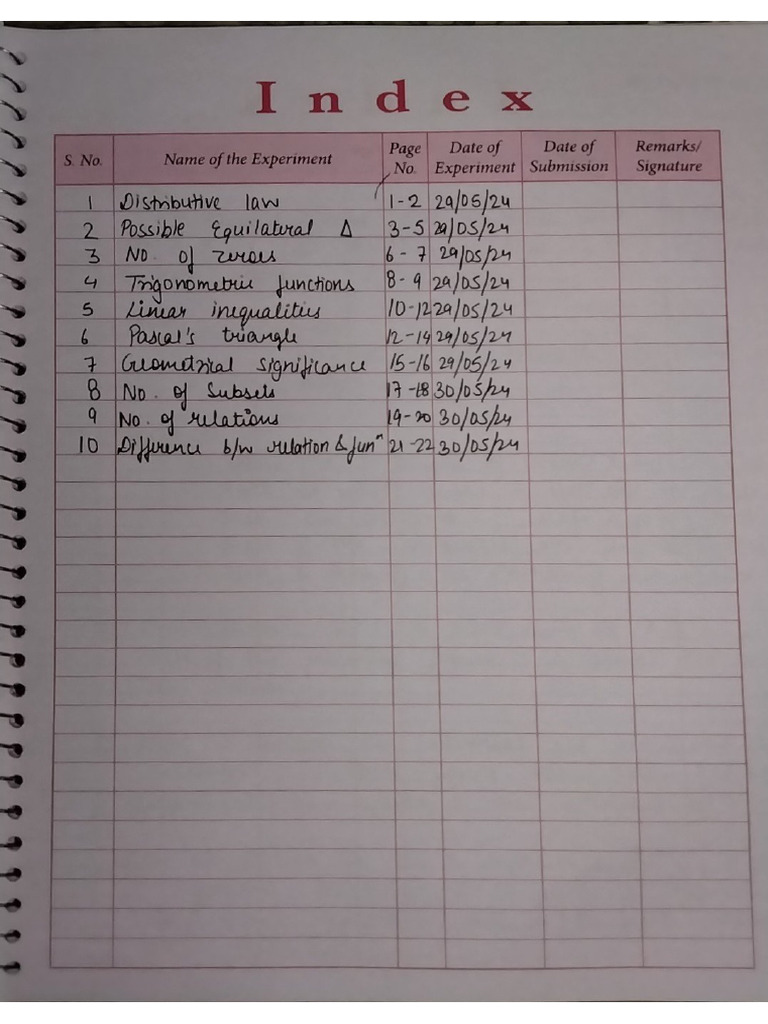 Index
S. No. Name of the Experiment Page No. Date of Experiment Date of Submission Remarks/ Signature
1 Distributive law 1-2 29/05/24
2 Possible Equilateral Δ 3-5 29/05/24
3 No. of zeroes 6-7 29/05/24
4 Trigonometric functions 8-9 29/05/24
5 Linear inequalities 10-12 29/05/24
6 Pascal's triangle 12-14 29/05/24
7 Geometrical significance 15-16 29/05/24
8 No. of Subsets 17-18 30/05/24
9 No. of relations 19-20 30/05/24
10 Difference b/w relation & funⁿ 21-22 30/05/24